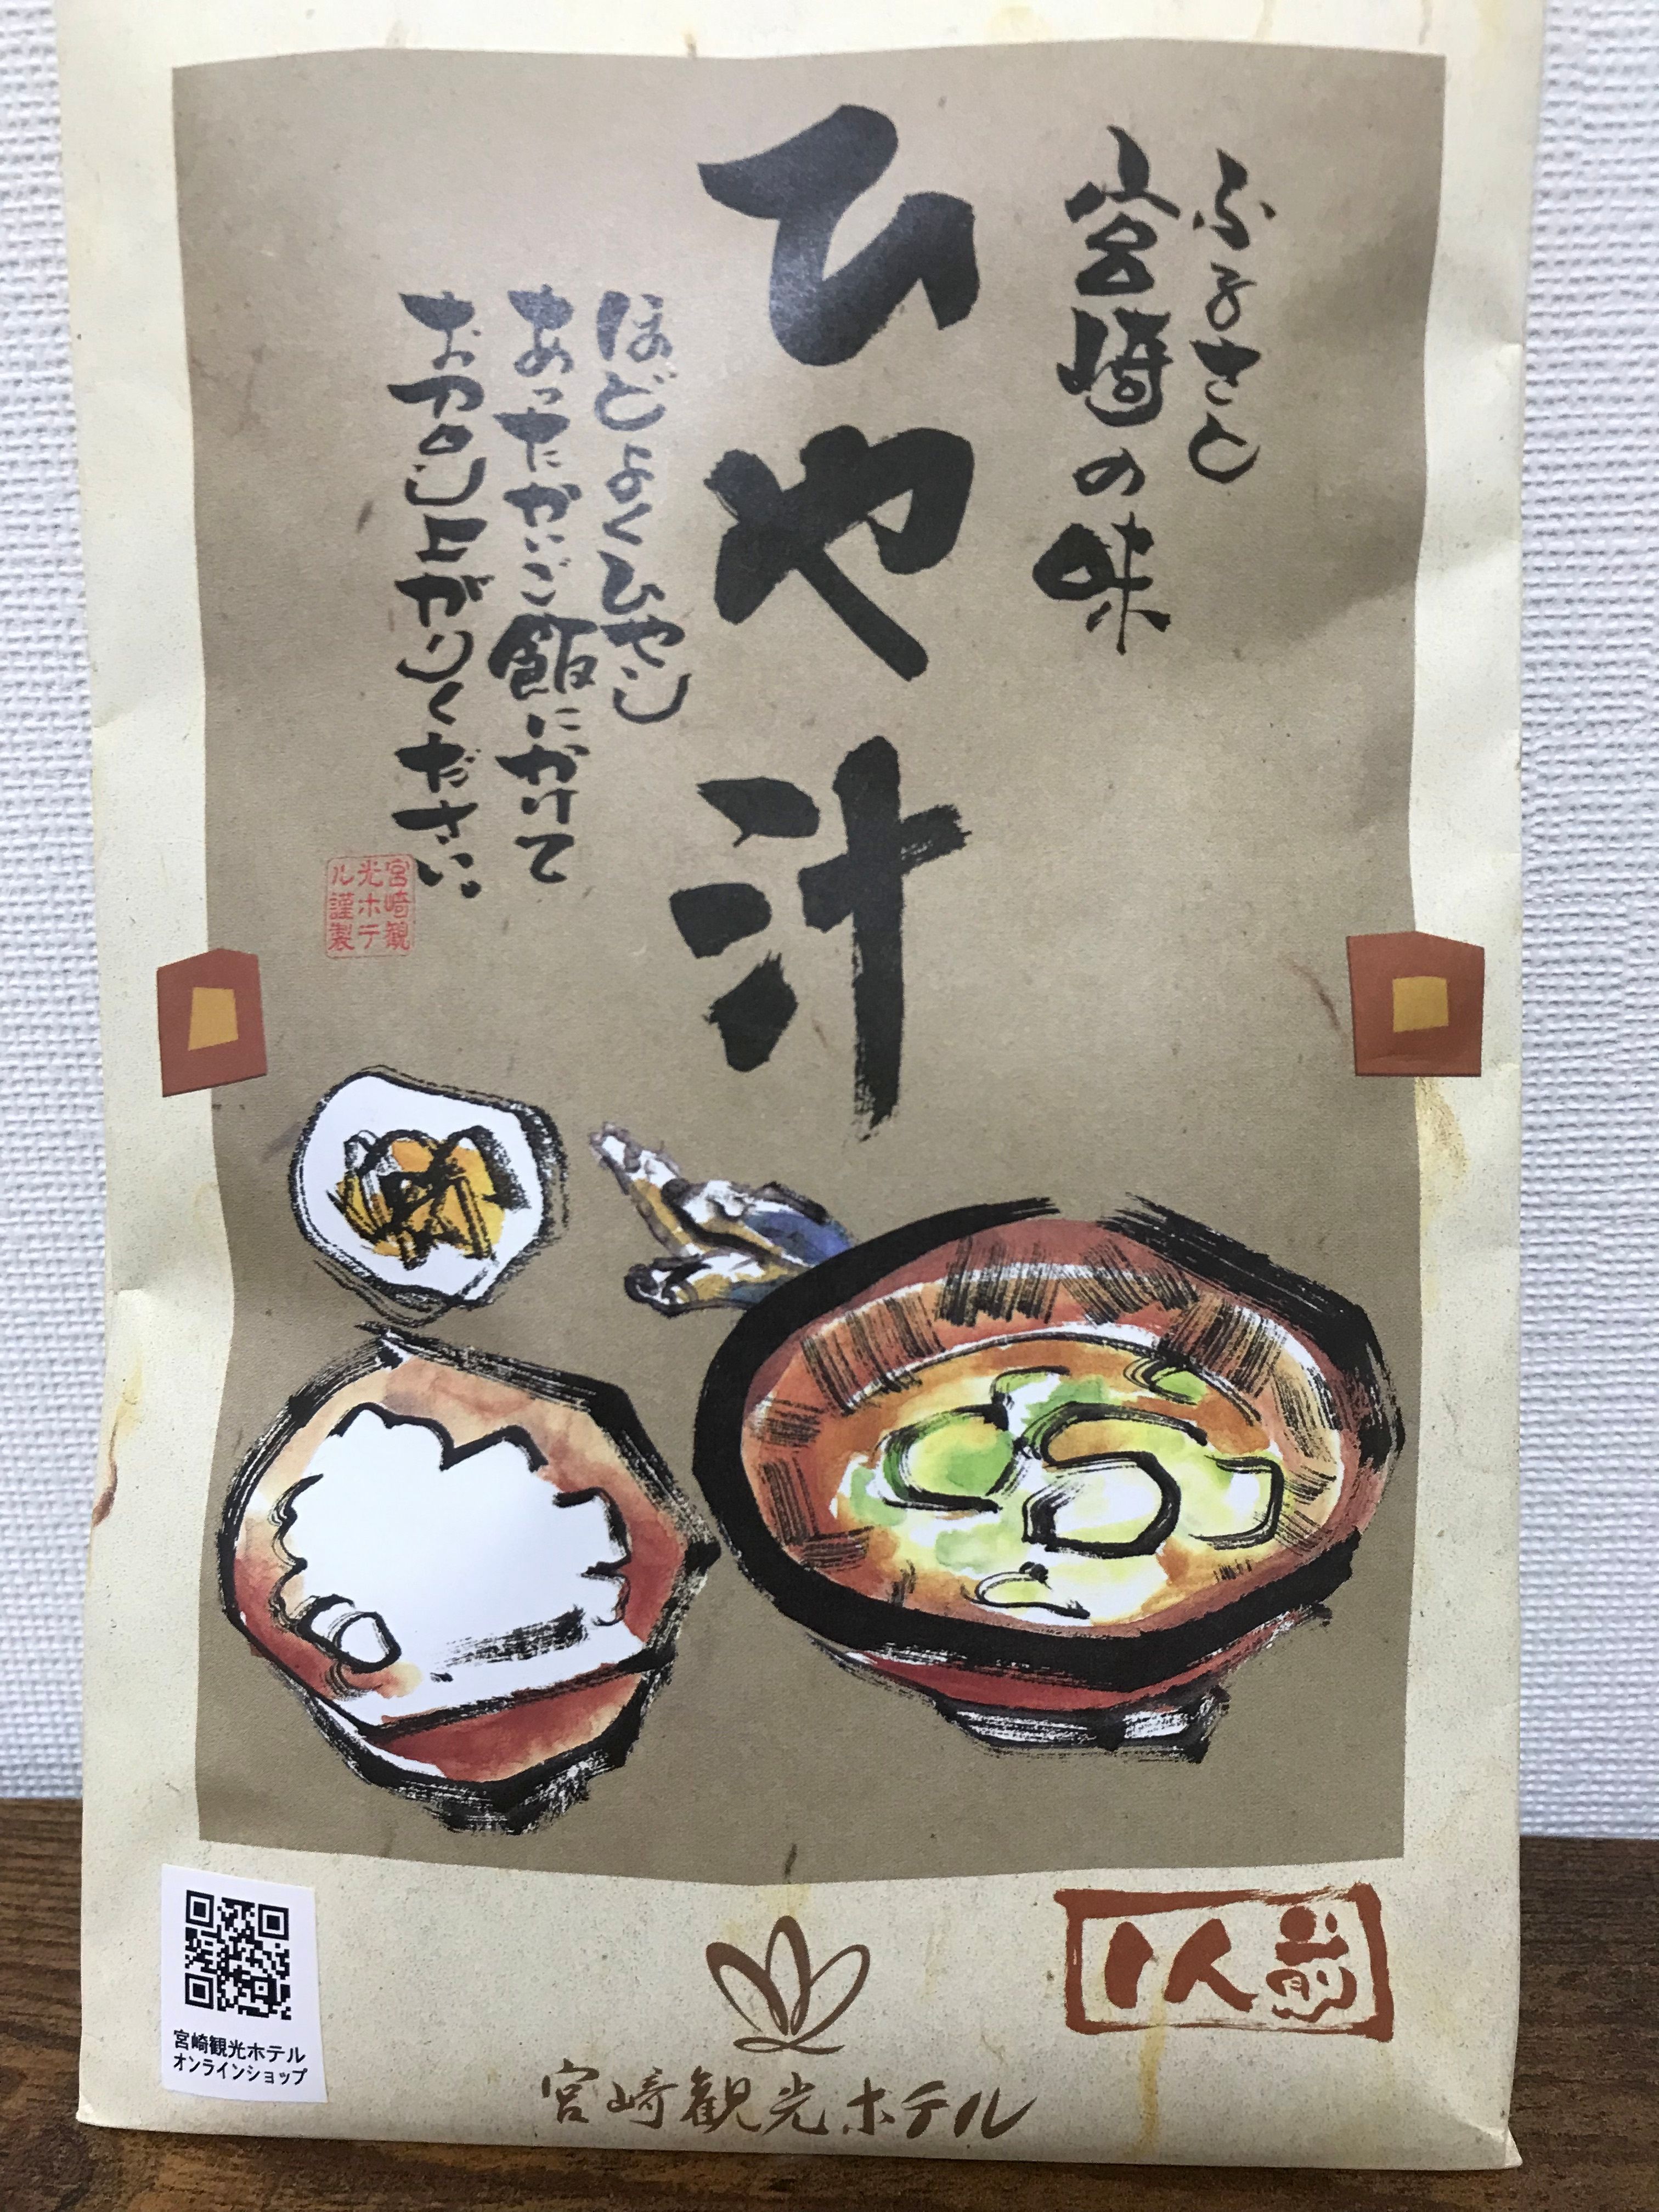 ふるさと
宮崎の味
ひや汁
ほどよくひやし
あったかいご飯にかけて
おめし上がりください
宮崎観
光ホテ
ル謹製
1人前
宮崎観光ホテル
オンラインショップ
宮崎観光ホテル